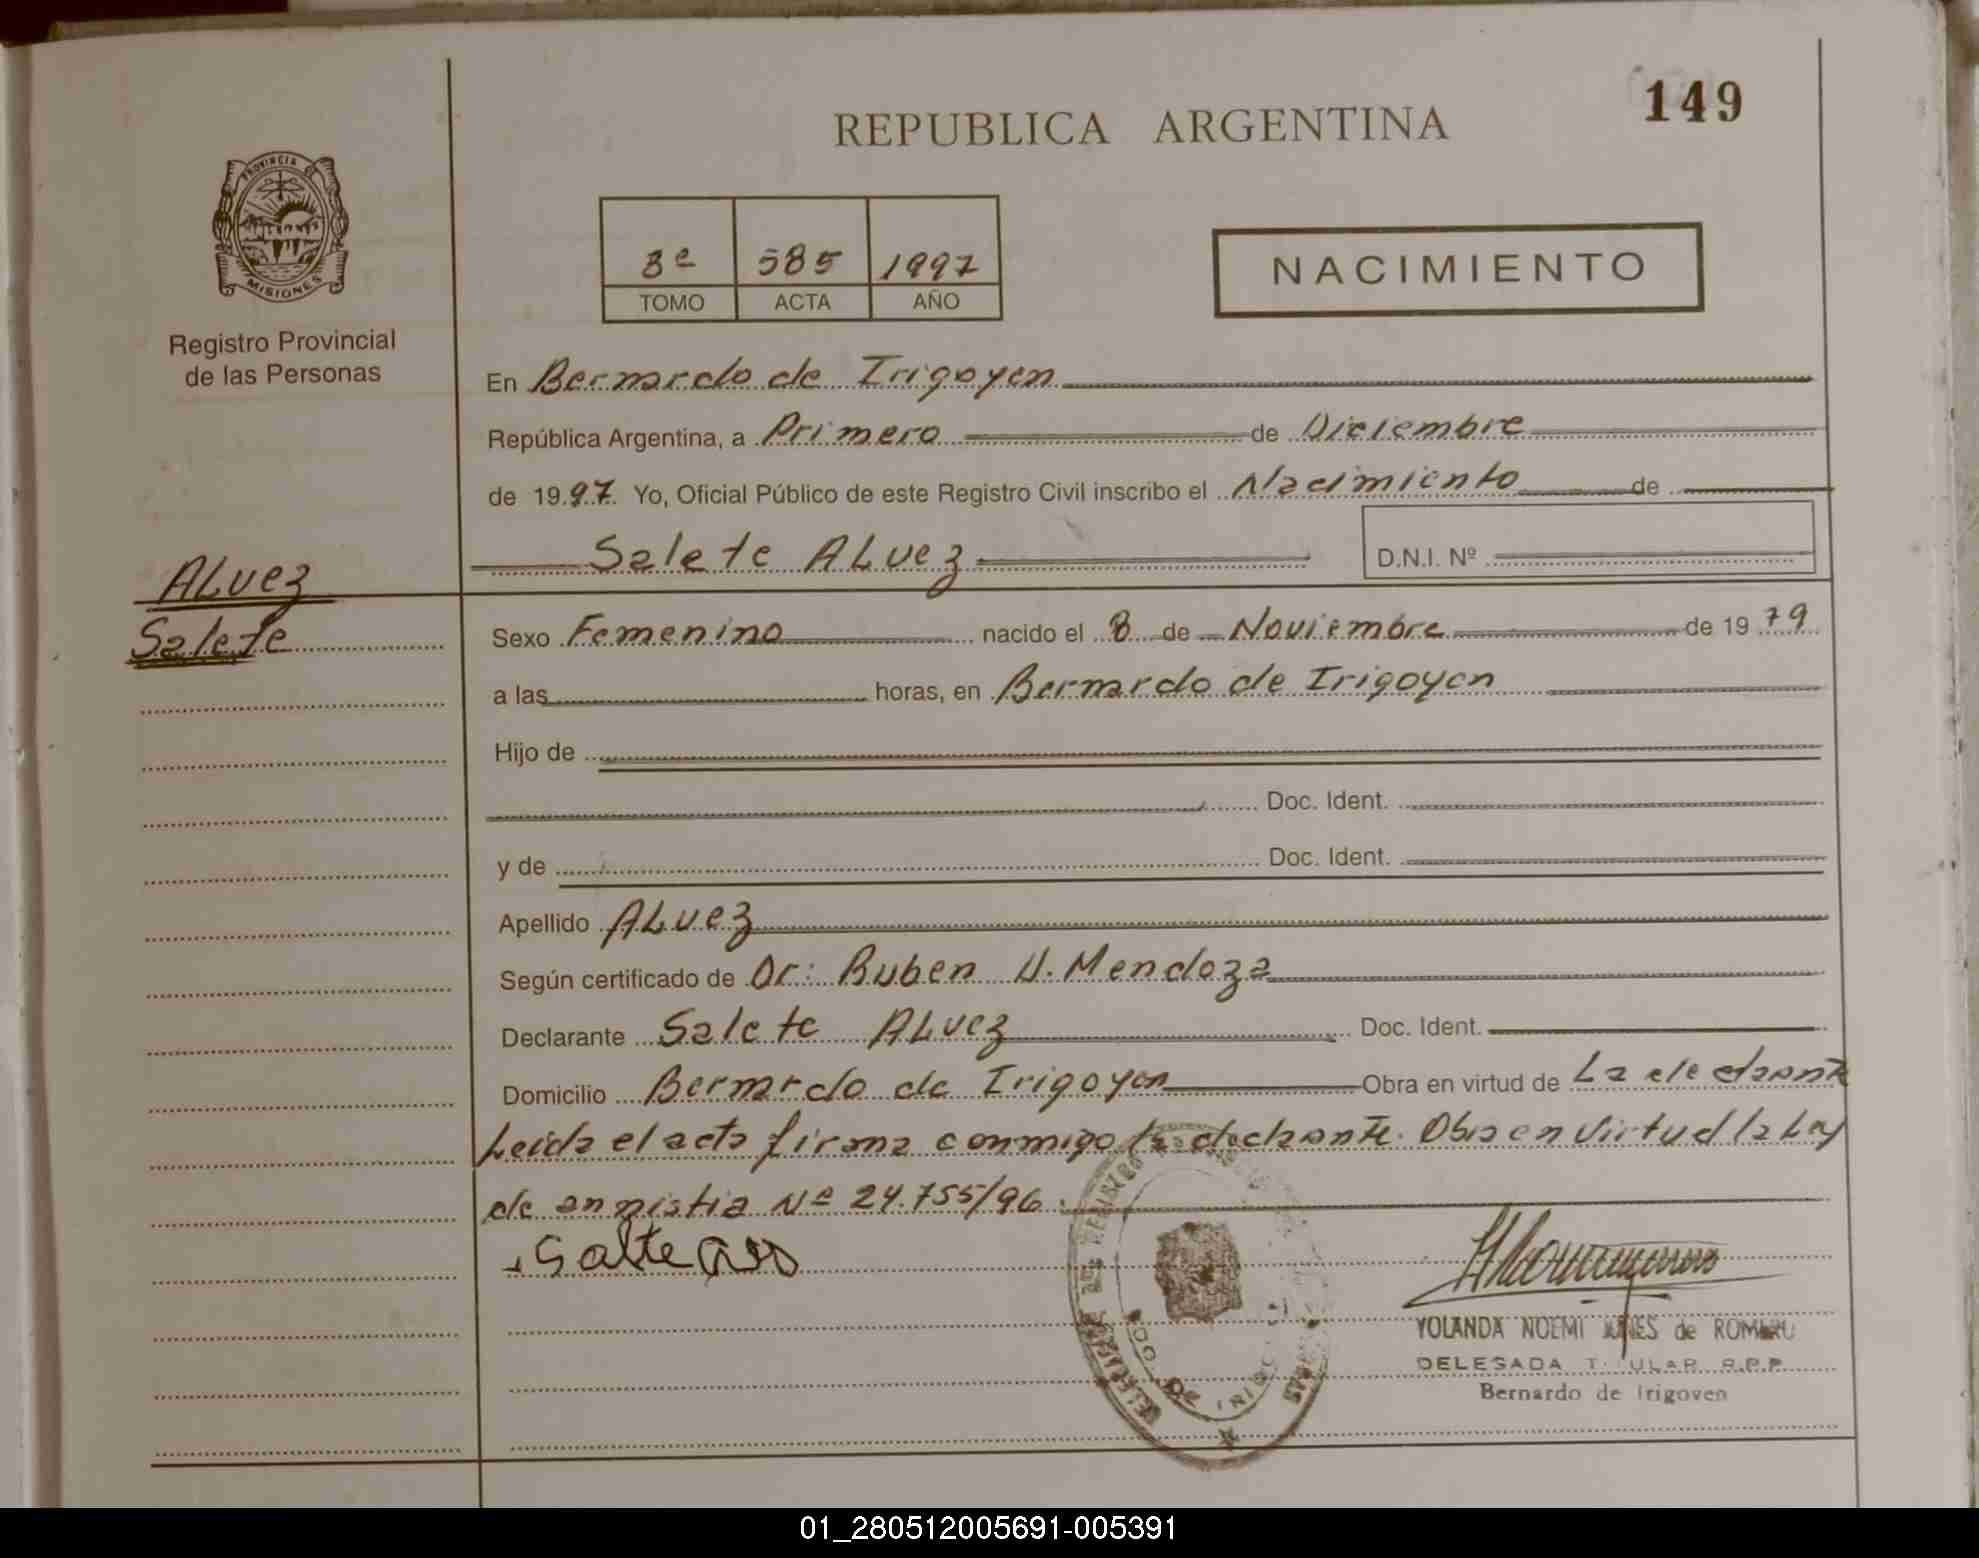 149
REPUBLICA ARGENTINA
PROVINCIA DE
MISIONES
Registro Provincial
de las Personas
3º 585 1997
TOMO ACTA AÑO
NACIMIENTO
En Bernardo de Irigoyen
República Argentina, a Primero de Diciembre
de 1997. Yo, Oficial Público de este Registro Civil inscribo el Nacimiento de
Salete ALvez
D.N.I. Nº
ALvez
Salete
Sexo Femenino nacido el 8 de Noviembre de 1979
a las horas, en Bernardo de Irigoyen
Hijo de
Doc. Ident.
y de Doc. Ident.
Apellido ALvez
Según certificado de Dr: Ruben H. Mendoza
Declarante Salete ALvez Doc. Ident.
Domicilio Bernardo de Irigoyen Obra en virtud de La
Leida el acta firma conmigo la Obra en virtud la Ley
de anmistia Nº 24.755/96.
YOLANDA NOEMI de ROMERO
DELEGADA TITULAR R.P.P.
Bernardo de Irigoyen
01_280512005691-005391